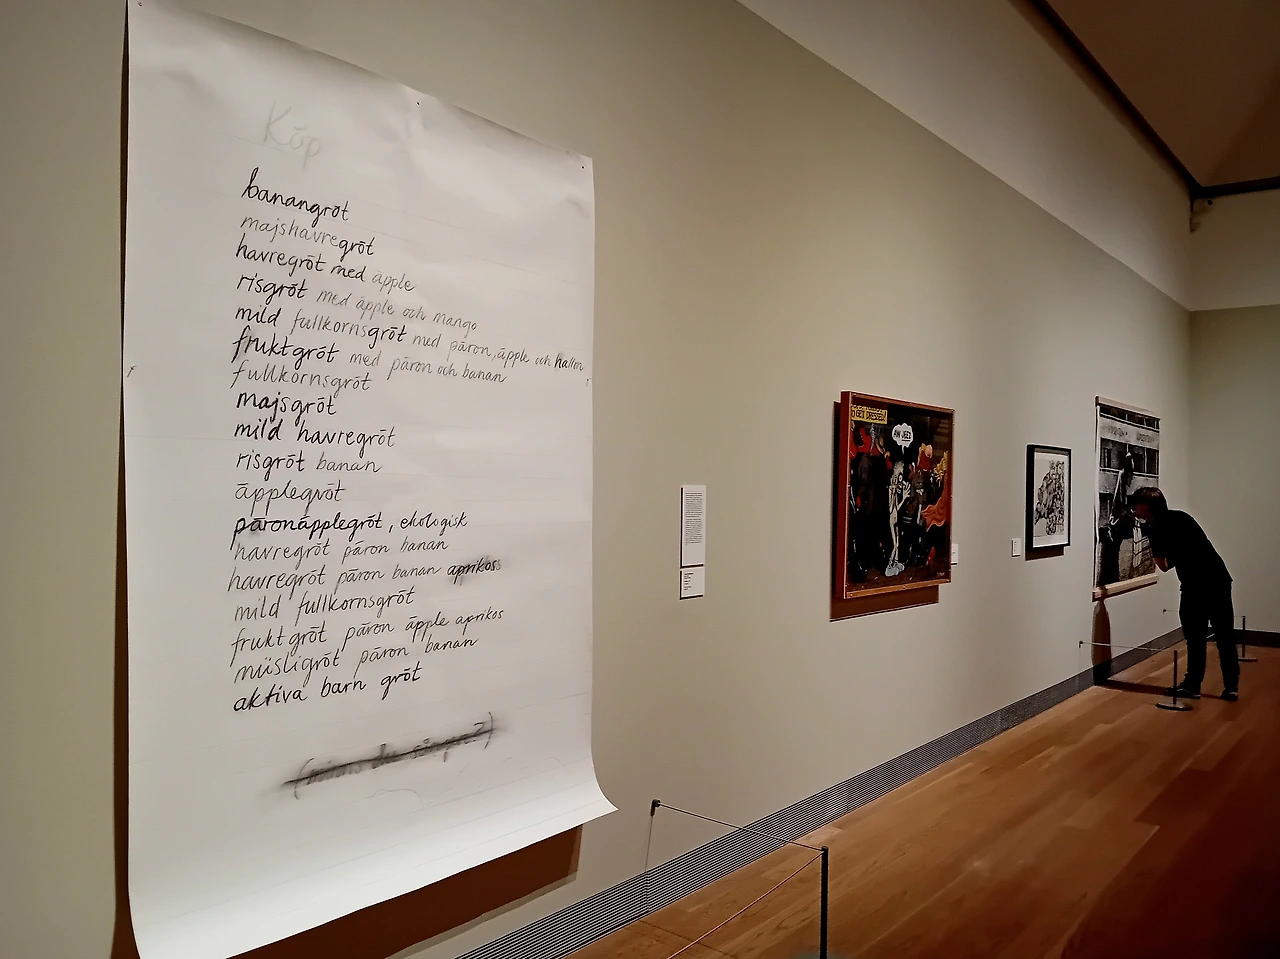 Köp
banangröt
majshavregröt
havregröt med äpple
risgröt med äpple och mango
mild fullkornsgröt med päron, äpple och hallon
fruktgröt med päron och banan
fullkornsgröt
majsgröt
mild havregröt
risgröt banan
äpplegröt
päronäpplegröt, ekologisk
havregröt päron banan
havregröt päron banan aprikos
mild fullkornsgröt
fruktgröt päron äpple aprikos
müsligröt päron banan
aktiva barn gröt
(minns du sången?)
AW JEEZ